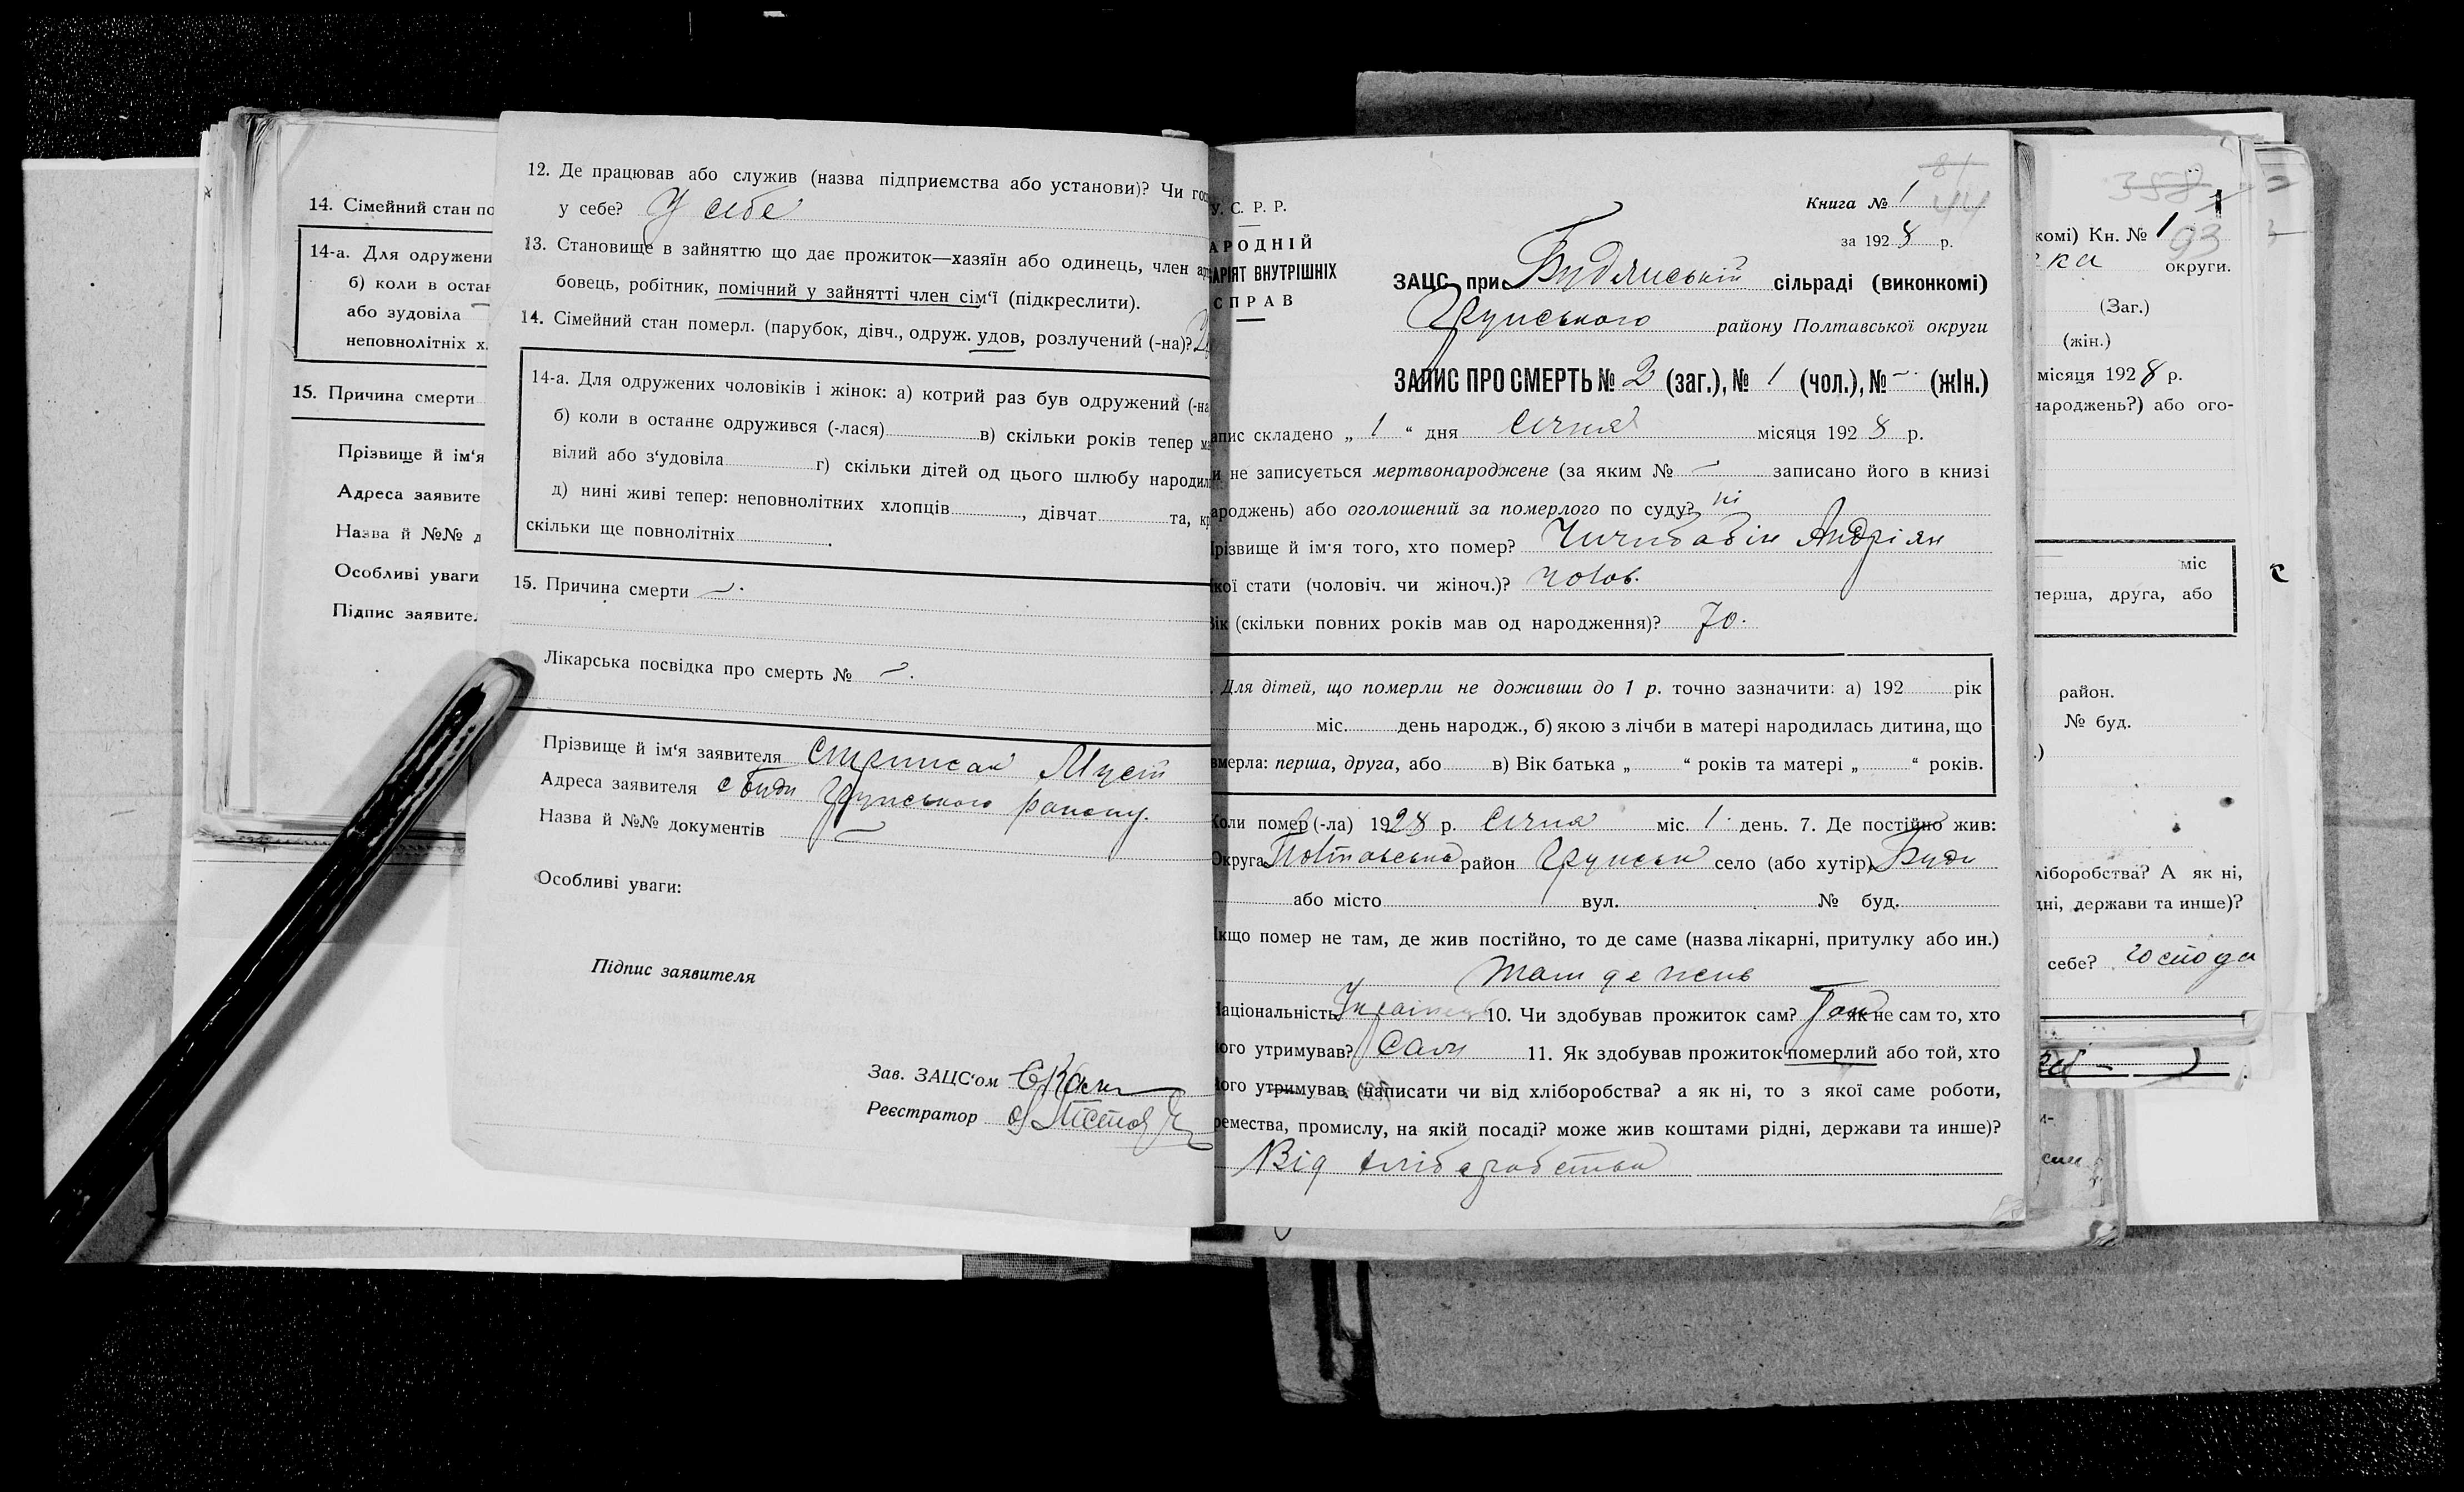 14. Сімейний стан по
14-а. Для одружени
б) коли в остан
або зудовіла
неповнолітніх х
15. Причина смерти
Прізвище й ім'я
Адреса заявите
Назва й №№ д
Особливі уваги
Підпис заявител
12. Де працював або служив (назва підприємства або установи)? Чи гос
у себе? У себе
13. Становище в зайняттю що дає прожиток—хазяїн або одинець, член ар
бовець, робітник, помічний у зайнятті член сім'ї (підкреслити).
14. Сімейний стан померл. (парубок, дівч., одруж. удов, розлучений (-на)?
14-а. Для одружених чоловіків і жінок: а) котрий раз був одружений (-на
б) коли в останнє одружився (-лася) в) скільки років тепер ма
вілий або з'удовіла г) скільки дітей од цього шлюбу народил
д) нині живі тепер: неповнолітних хлопців , дівчат та, кр
скільки ще повнолітніх .
15. Причина смерти —.
Лікарська посвідка про смерть № —.
Прізвище й ім'я заявителя
Адреса заявителя с Буди Грунського району.
Назва й №№ документів —
Особливі уваги:
Підпис заявителя
Зав. ЗАЦС'ом
Реєстратор
У. С. Р. Р.
АРОДНІЙ
АРІЯТ ВНУТРІШНІХ
СПРАВ
81
44
Книга № 1
за 1928 р.
ЗАЦС при Будянській сільраді (виконкомі)
Грунського району Полтавської округи
ЗАПИС ПРО СМЕРТЬ № 2 (заг.), № 1 (чол.), № — (жін.)
апис складено „ 1 “ дня Січня місяця 1928 р.
и не записується мертвонароджене (за яким № — записано його в книзі
ароджень) або оголошений за померлого по суду? ні
різвище й ім'я того, хто помер? Чичибабін Андріян
кої стати (чоловіч. чи жіноч.)? чолов.
Вік (скільки повних років мав од народження)? 70.
. Для дітей, що померли не доживши до 1 р. точно зазначити: а) 192 рік
міс. день народж., б) якою з лічби в матері народилась дитина, що
вмерла: перша, друга, або в) Вік батька „ “ років та матері „ “ років.
Коли помер (-ла) 1928 р. Січня міс. 1 день. 7. Де постійно жив:
Округа Полтавська район Грунськ село (або хутір) Буди
або місто вул. № буд.
Якщо помер не там, де жив постійно, то де саме (назва лікарні, притулку або ин.)
Там де жив
Національність Українець 10. Чи здобував прожиток сам? Так як не сам то, хто
ого утримував? Сам 11. Як здобував прожиток померлий або той, хто
ого утримував, (написати чи від хліборобства? а як ні, то з якої саме роботи,
ремества, промислу, на якій посаді? може жив коштами рідні, держави та инше)?
Від хліборобства
358
93
комі) Кн. № 1
ка округи.
(Заг.)
(жін.)
місяця 1928 р.
народжень?) або ого-
міс
перша, друга, або
район.
№ буд.
.)
ліборобства? А як ні,
дні, держави та инше)?
себе? господа